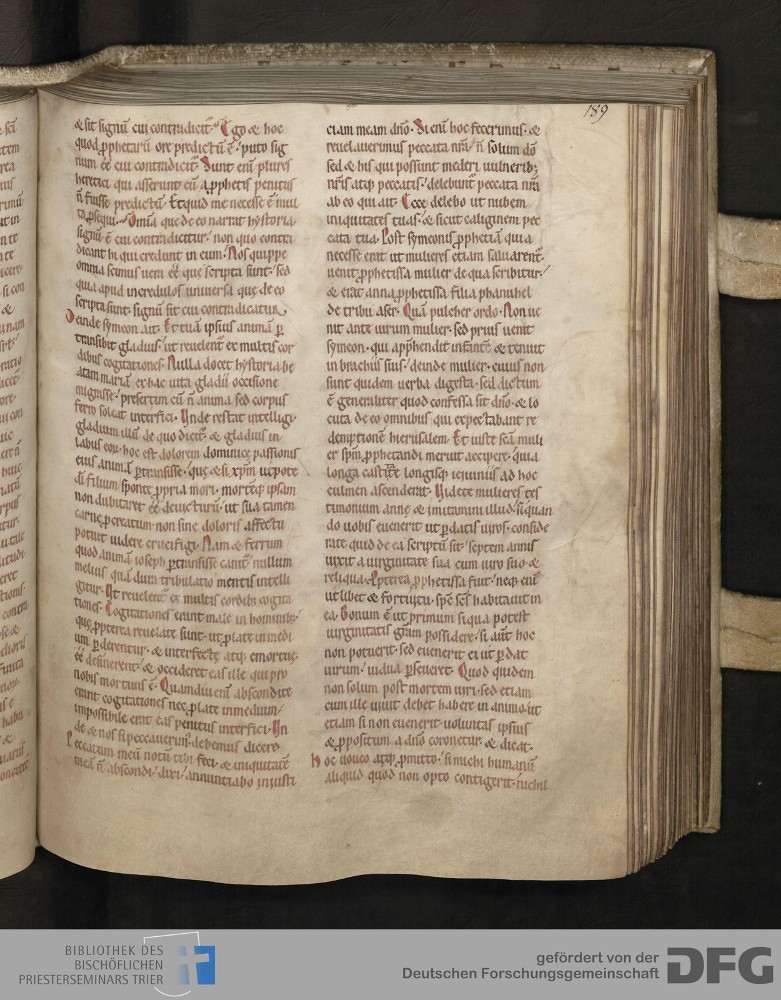 189
& sit signũ cui contradicit᷑. Ego & hoc
quod ꝓphetarũ ore predictũ ẽ. puto sig
num eẽ cui contradicit᷑. Sunt eni plures
heretici qui asserunt eũ a ꝓphetis penitus
ñ fuisse predictũ. Et quid me necesse ẽ mul
ta ꝓsequi. Omnia que de eo narrat hystoria
signũ ẽ cui contradicitur. non quo contra
dicant hi qui credunt in eum. Nos quippe
omnia scimus uera eẽ quę scripta sunt. sed
quia apud incredulos uniuersa quę de eo
scripta sunt signũ sit cui contradicatur.
Deinde symeon ait. Et tuã ipsius animã ꝑ
transibit gladius. ut reuelent᷑ ex multis cor
dibus cogitationes. Nulla docet hystoria be
atam mariã ex hac uita gladii occisione
migrasse. presertim cũ ñ anima sed corpus
ferro soleat interfici. Unde restat intelligi
gladium illũ de quo dicit᷑. & gladius in
labiis eoꝝ. hoc est dolorem dominicę passionis
eius animã ꝑtransisse. quę & si xp̃m utpote
di filium sponte ꝓpria mori. mortẽq; ipsam
non dubitaret eẽ deuicturũ. ut sua tamen
carne ꝓcreatum non sine doloris affectu
potuit uidere crucifigi. Nam & ferrum
quod animã ioseph ꝑtransisse canit᷑. nullum
melius quã dura tribulatio mentis intelli
gitur. Ut reuelent᷑ ex multis cordib; cogita
tiones. Cogitationes erant male in hominib;
quę ꝓpterea reuelate sunt. ut ꝓlate in medi
um ꝑderentur. & interfectę atq; emortuę
eẽ desinerent. & occideret eas ille qui pro
nobis mortuus ẽ. Quamdiu eni abscondite
erant cogitationes nec ꝓlate in medium.
impossibile erat eas penitus interfici. Un
de & nos si peccauerim᷒. debemus dicere.
Peccatum meũ notũ tibi feci. & iniquitatẽ
meã ñ abscondi. dixi. annuntiabo iniusti
ciam meam dño. Si eni hoc fecerimus. &
reuelauerimus peccata nr̃a. ñ solum dõ
sed & his qui possunt mederi uulnerib;
nr̃is atq; peccatis. delebunt᷑ peccata nr̃a
ab eo qui ait. Ecce delebo ut nubem
iniquitates tuas. & sicut caliginem pec
cata tua. Post symeonis ꝓphetiã quia
necesse erat ut mulieres etiam saluarent᷑.
uenit ꝓphetissa mulier de qua scribitur.
& erat anna ꝓphetissa filia phanuhel
de tribu aser. Quã pulcher ordo. Non ue
nit ante uirum mulier. sed prius uenit
symeon. qui app̃hendit infantẽ. & tenuit
in brachiis suis. deinde mulier. cuius non
sunt quidem uerba digesta. sed dictum
ẽ generaliter quod confessa sit dño. & lo
cuta de eo omnibus qui expectabant re
demptionẽ hierusalem. Et iuste sc̃a muli
er sp̃m ꝓphetandi meruit accipere. quia
longa castitate longisq; ieiuniis ad hoc
culmen ascenderat. Uidete mulieres tes
timonium annę & imitamini illud. si quan
do uobis euenerit ut ꝑdatis uiros. conside
rate quid de ea scriptũ sit. Septem annis
uixit a uirginitate sua cum uiro suo. &
reliqua. Ꝓpterea ꝓphetissa fuit. neq; eni
ut libet & fortuitu. sp̃c sc̃s habitauit in
ea. Bonum ẽ ut primum si qua potest
uirginitatis gr̃am possidere. si aut̃ hoc
non potuerit. sed euenerit ei ut ꝑdat
uirum. uidua ꝑseueret. Quod quidem
non solum post mortem uiri. sed etiam
cum ille uiuit debet habere in animo. ut
etiam si non euenerit. uoluntas ipsius
& ꝓpositum a dño coronetur. & dicat.
Hoc uoueo atq; ꝓmitto. si michi humanũ
aliquid quod non opto contigerit. nichil
BIBLIOTHEK DES
BISCHÖFLICHEN
PRIESTERSEMINARS TRIER
gefördert von der
Deutschen Forschungsgemeinschaft
DFG